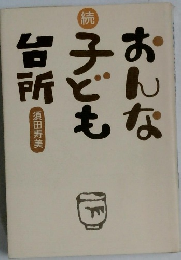 おんな
続
子ども
台所
須田寿美